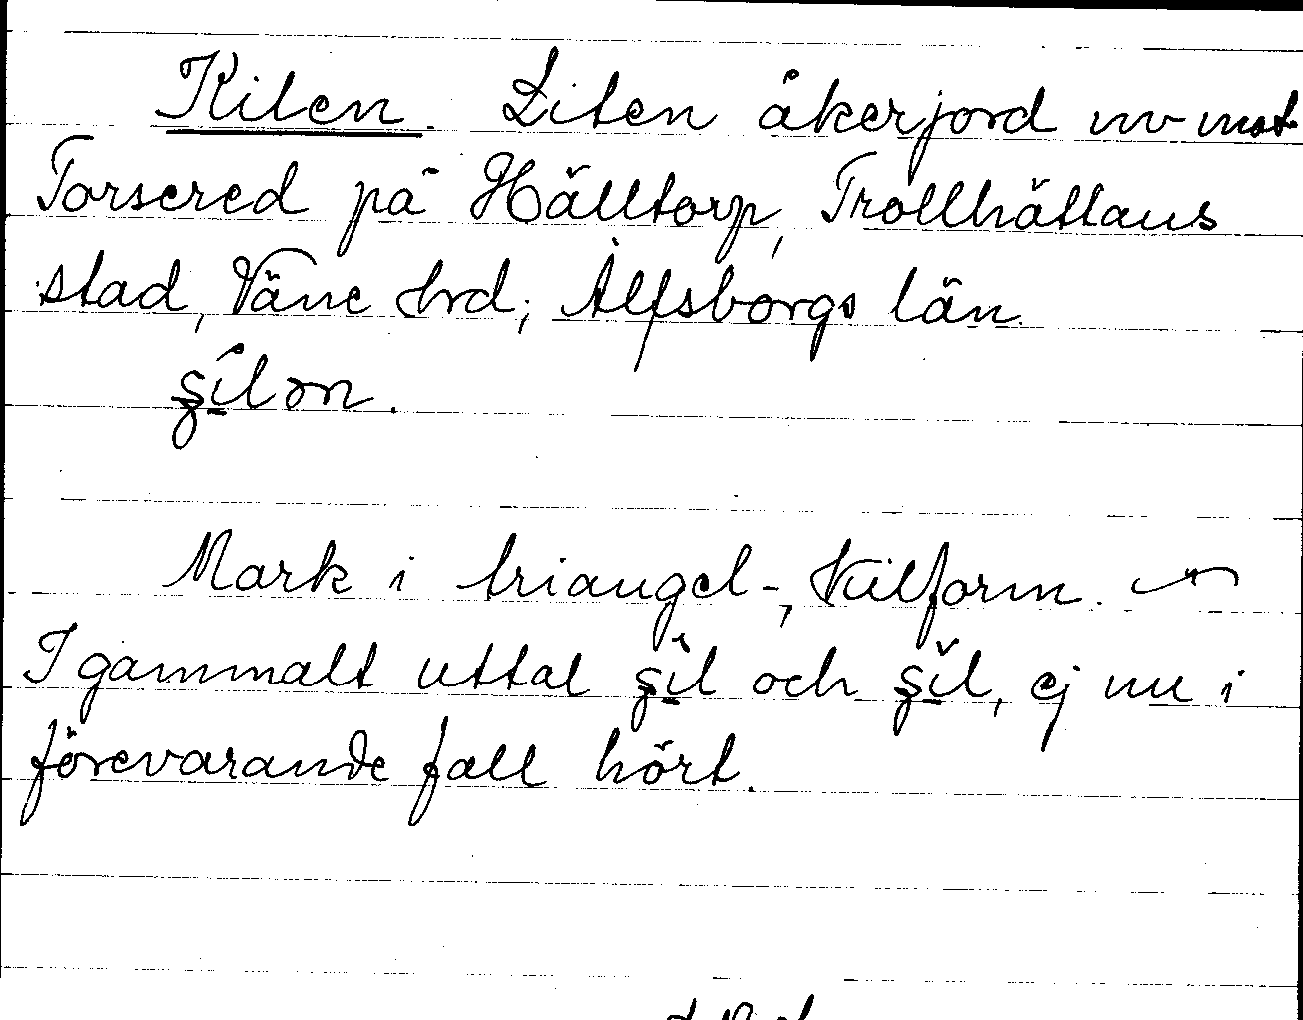 Kilen. Liten åkerjord nv mot
Torsered på Hälltorp, Trollhättans
stad, Väne hrd, Älfsborgs län.
Mark i triangel-, kilform.
I gammalt uttal och ej nu i
förevarande fall hört.